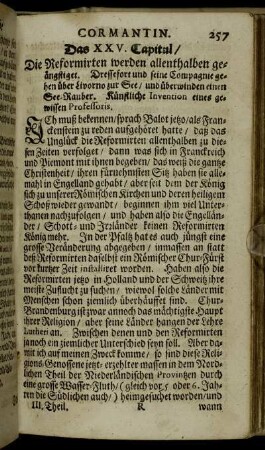 CORMANTIN. 257
Das XXV. Capitul/
Die Reformirten werden allenthalben ge-
ängstiget. Dressefort und seine Compagnie ge-
hen über Livorno zur See/ und überwinden einen
See-Rauber. Künstliche Invention eines ge-
wissen Professoris.
ICh muß bekennen/ sprach Balot jetzo/ als Fran-
ckenstein zu reden aufgehöret hatte/ daß das
Unglück die Reformirten allenthalben zu die-
sen Zeiten verfolget/ dann was sich in Franckreich
und Piemont mit ihnen begeben/ das weiß die gantze
Christenheit/ ihren fürnehmsten Sitz haben sie alle-
mahl in Engelland gehabt/ aber seit dem der König
sich zu unserer Römischen Kirchen und deren heiligem
Schoß wieder gewand/ beginnen ihm viel Unter-
thanen nachzufolgen/ und haben also die Engellän-
der/ Schott- und Irzländer keinen Reformirten
König mehr. In der Pfaltz hats auch jüngst eine
grosse Veränderung abgegeben/ immassen an statt
des Reformirten daselbst ein Römischer Chur-Fürst
vor kurtzer Zeit installiret worden. Haben also die
Reformirten jetzo in Holland und der Schweitz ihre
meiste Zuflucht zu suchen/ wiewol solche Länder mit
Menschen schon ziemlich überhäuffet sind. Chur-
Brandenburg ist zwar annoch das mächtigste Haupt
ihrer Religion/ aber seine Länder hangen der Lehre
Lutheri an. Zwischen denen und den Reformirten
annoch ein ziemlicher Unterschied seyn soll. Aber da-
mit ich auf meinen Zweck komme/ so sind diese Reli-
gions-Genossene jetzt-erzehlter massen in dem Nord-
lichen Theil der Niederländischen Provintzen durch
eine grosse Wasser-Fluth/ (gleich vor 5 oder 6. Jah-
ren die Südlichen auch/) heimgesuchet worden/ und
III. Theil. R wann